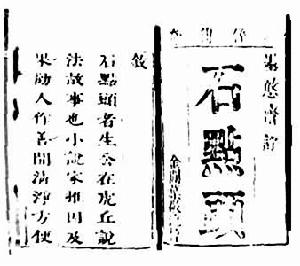 墨憨齋評
石點頭
金閶
敘
石點頭者生公在虎丘說
法故事也小說家推因及
果勸人作善開清淨方便